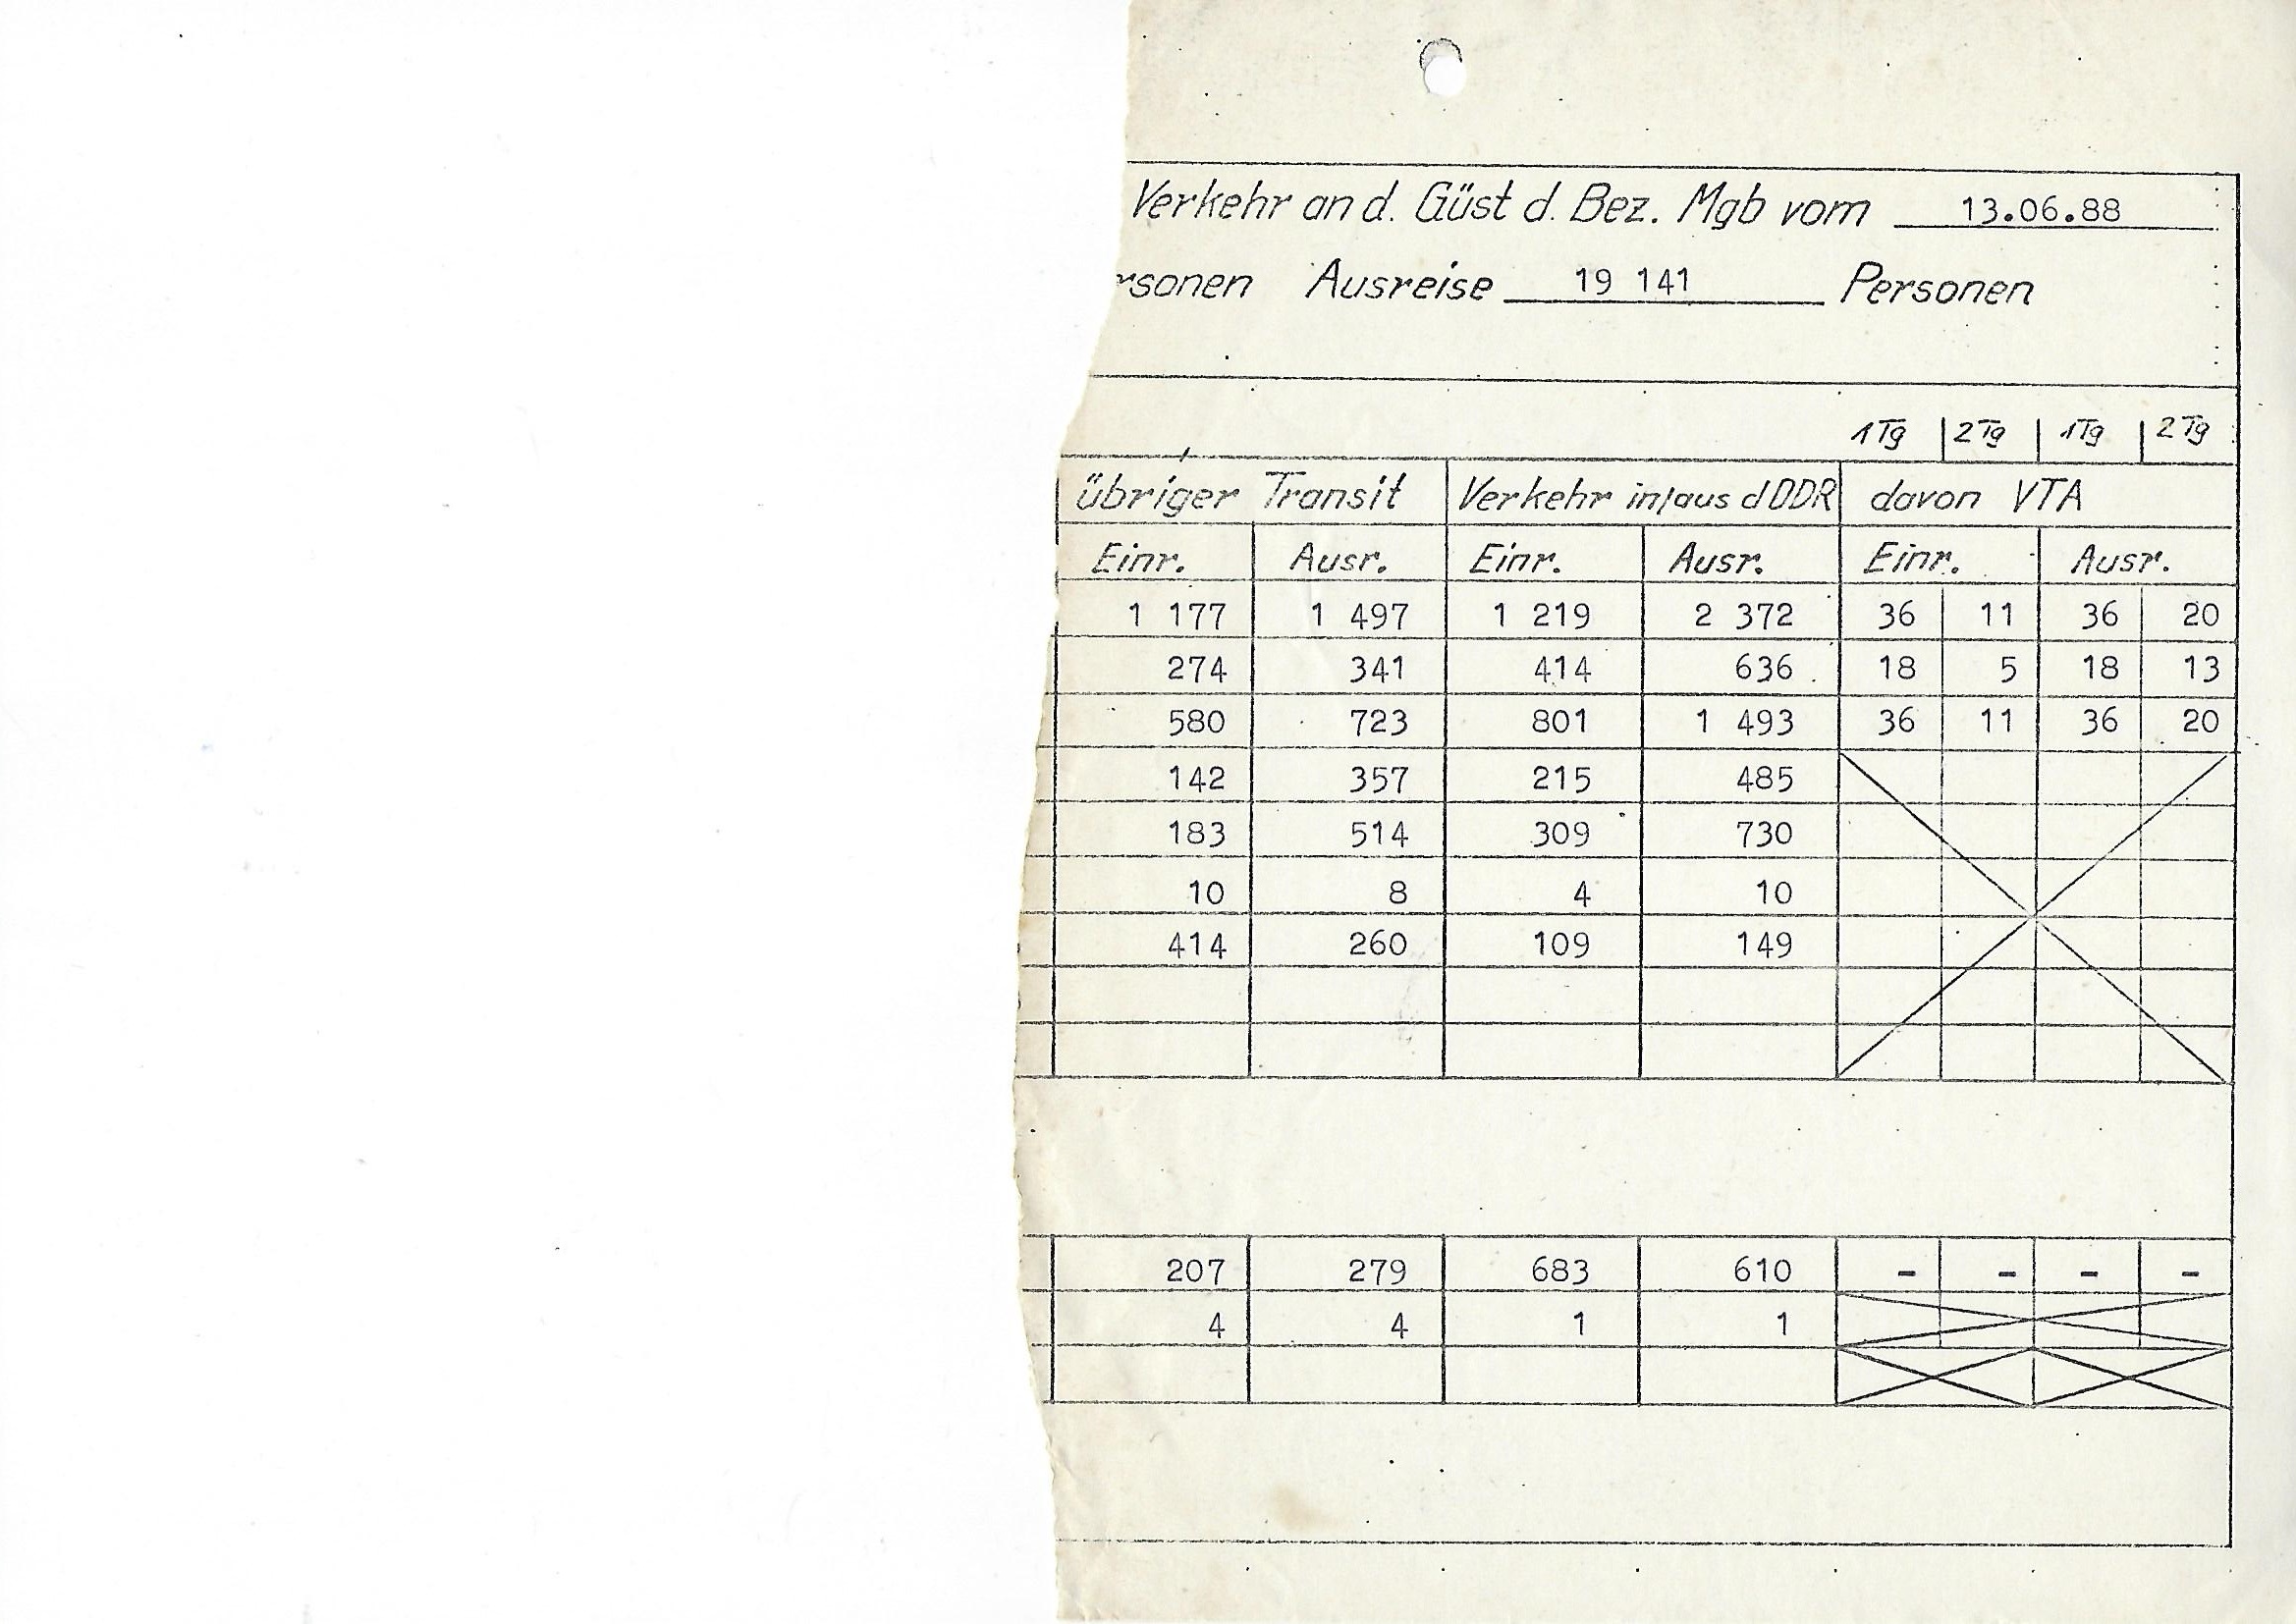 Verkehr an d. Güst d. Bez. Mgb vom 13.06.88
rsonen Ausreise 19 141 Personen
1 Tg 2 Tg 1 Tg 2 Tg
übriger Transit Verkehr in/aus d DDR davon VTA
Einr. Ausr. Einr. Ausr. Einr. Ausr.
1 177 1 497 1 219 2 372 36 11 36 20
274 341 414 636 18 5 18 13
580 723 801 1 493 36 11 36 20
142 357 215 485
183 514 309 730
10 8 4 10
414 260 109 149
207 279 683 610 - - - -
4 4 1 1